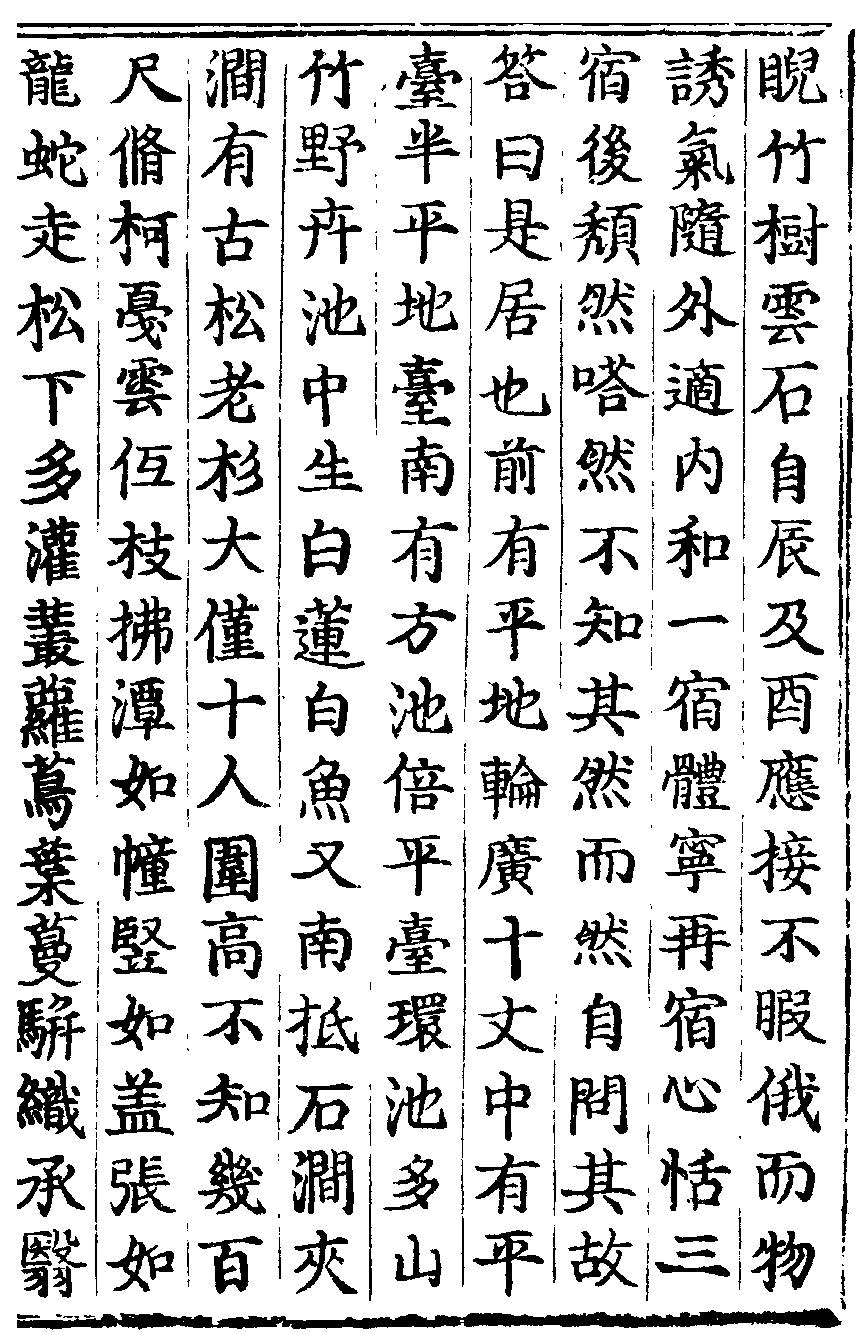 睨竹樹雲石自辰及酉應接不暇俄而物
誘氣隨外適内和一宿體寧再宿心恬三
宿後頹然嗒然不知其然而然自問其故
答曰是居也前有平地輪廣十丈中有平
臺半平地臺南有方池倍平臺環池多山
竹野卉池中生白蓮白魚又南抵石澗夾
澗有古松老杉大僅十人圍高不知幾百
尺脩柯戞雲低枝拂潭如幢豎如盖張如
龍蛇走松下多灌叢蘿蔦葉蔓騈織承翳